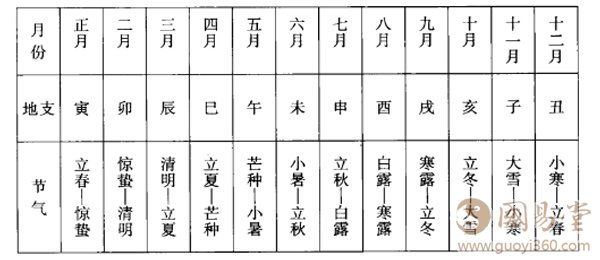 月份 正月 二月 三月 四月 五月 六月 七月 八月 九月 十月 十一月 十二月
地支 寅 卯 辰 巳 午 未 申 酉 戌 亥 子 丑
节气 立春—惊蛰 惊蛰—清明 清明—立夏 立夏—芒种 芒种—小暑 小暑—立秋 立秋—白露 白露—寒露 寒露—立冬 立冬—大雪 大雪—小寒 小寒—立春
國易堂
www.guoyi360.com